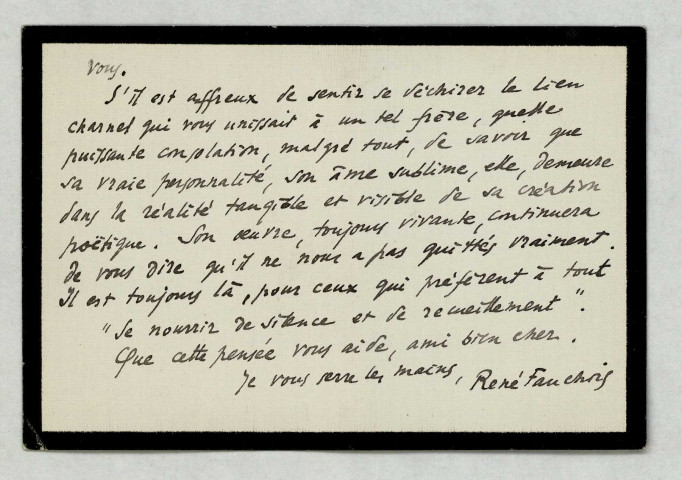 vous.
S'il est affreux de sentir se déchirer le lien
charnel qui vous unissait à un tel frère, quelle
puissante consolation, malgré tout, de savoir que
sa vraie personnalité, son âme sublime, elle, demeure
dans la réalité tangible et visible de sa création
poëtique. Son œuvre, toujours vivante, continuera
de vous dire qu'il ne nous a pas quittés vraiment.
Il est toujours là, pour ceux qui préfèrent à tout
"se nourrir de silence et de recueillement".
Que cette pensée vous aide, ami bien cher.
Je vous serre les mains, René Fauchois